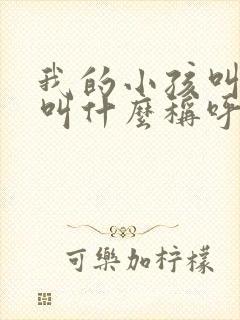 我的小孩叫
叫什麼稱呼
可樂加柠檬